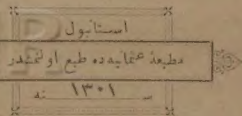 استانبول
مطبعهٔ عثمانیه‌ده طبع اولنمشدر
سنه ١٣٠١